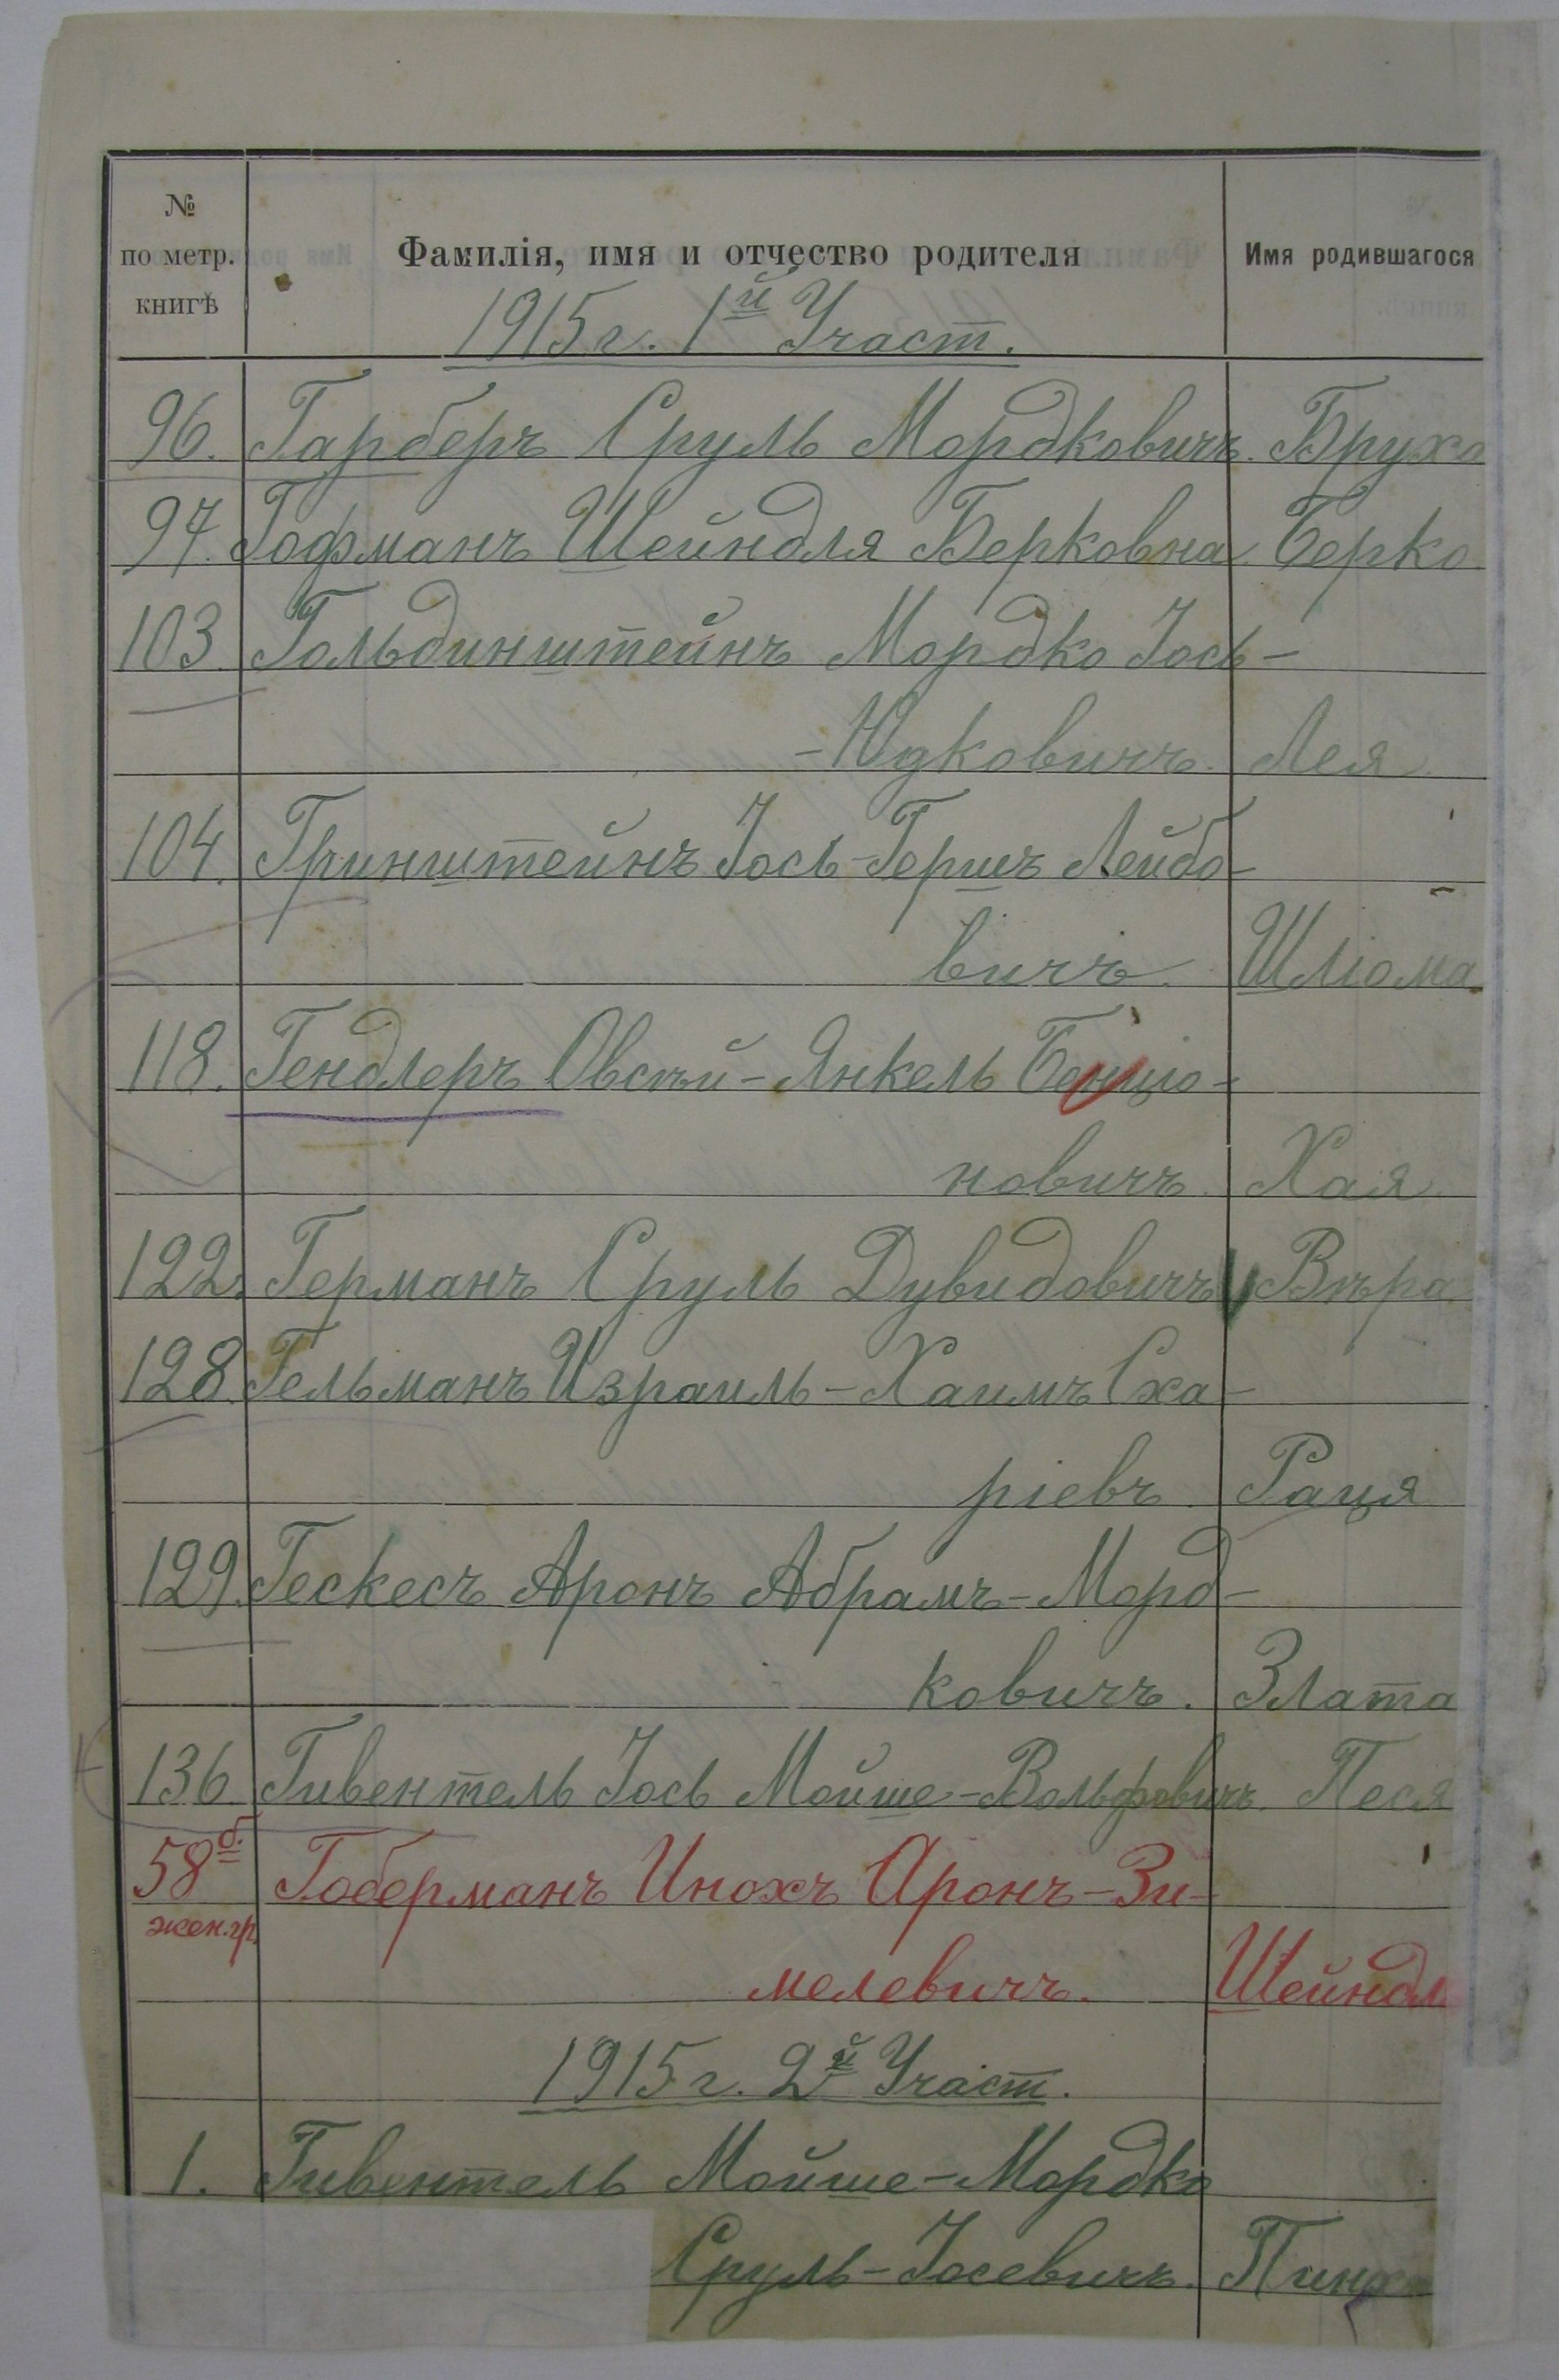 №
по метр.
книгѣ
Фамилія, имя и отчество родителя
Имя родившагося
1915 г. 1й Участ.
96. Гарберъ Сруль Мордковичъ. Бруха
97. Гофманъ Шейндля Берковна. Берко
103. Гольдинштейнъ Мордко Іось-
-Юдковичъ. Лея
104. Гринштейнъ Іось-Гершъ Лейбо-
вичъ. Шліома
118. Гендлеръ Овсѣй-Янкель Бенціо-
новичъ. Хая
122. Германъ Сруль Дувидовичъ Вѣра
128. Гельманъ Израиль-Хаимъ Сха-
ріевъ. Рация
129. Гескесъ Аронъ Абрамъ-Морд-
ковичъ. Злата
136. Гивентель Іось Мойше-Вольфовичъ. Песя
58б. Гоберманъ Инохъ Аронъ-Зи-
жен.гр.
мелевичъ. Шейндл
1915 г. 2й Участ.
1. Гивентель Мойше-Мордко
Сруль-Іосевичъ. Пинх